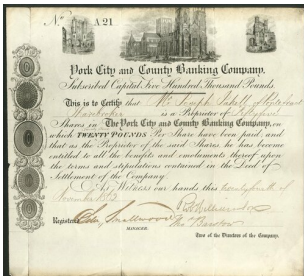 No. A 21
York City and County Banking Company,
Subscribed Capital Five Hundred Thousand Pounds
This is to Certify that Mr. Joseph
is a Proprietor of
Shares in The York City and County Banking Company, on
which TWENTY POUNDS Per Share have been paid; and
that as the Proprietor of the said Shares he has become
entitled to all the benefits and emoluments thereof upon
the terms and stipulations contained in the Deed of
Settlement of the Company.
As Witness our hands this of
November
Registered Smallwood Thos. Barstow
MANAGER.
Two of the Directors of the Company.